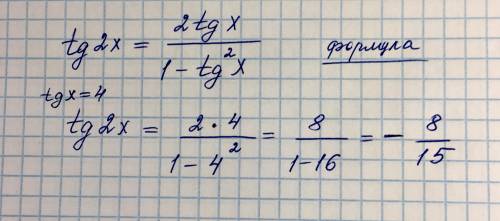 tg2x = 2tgx / 1 - tg²x формула
tgx=4
tg2x = 2·4 / 1-4² = 8 / 1-16 = - 8 / 15